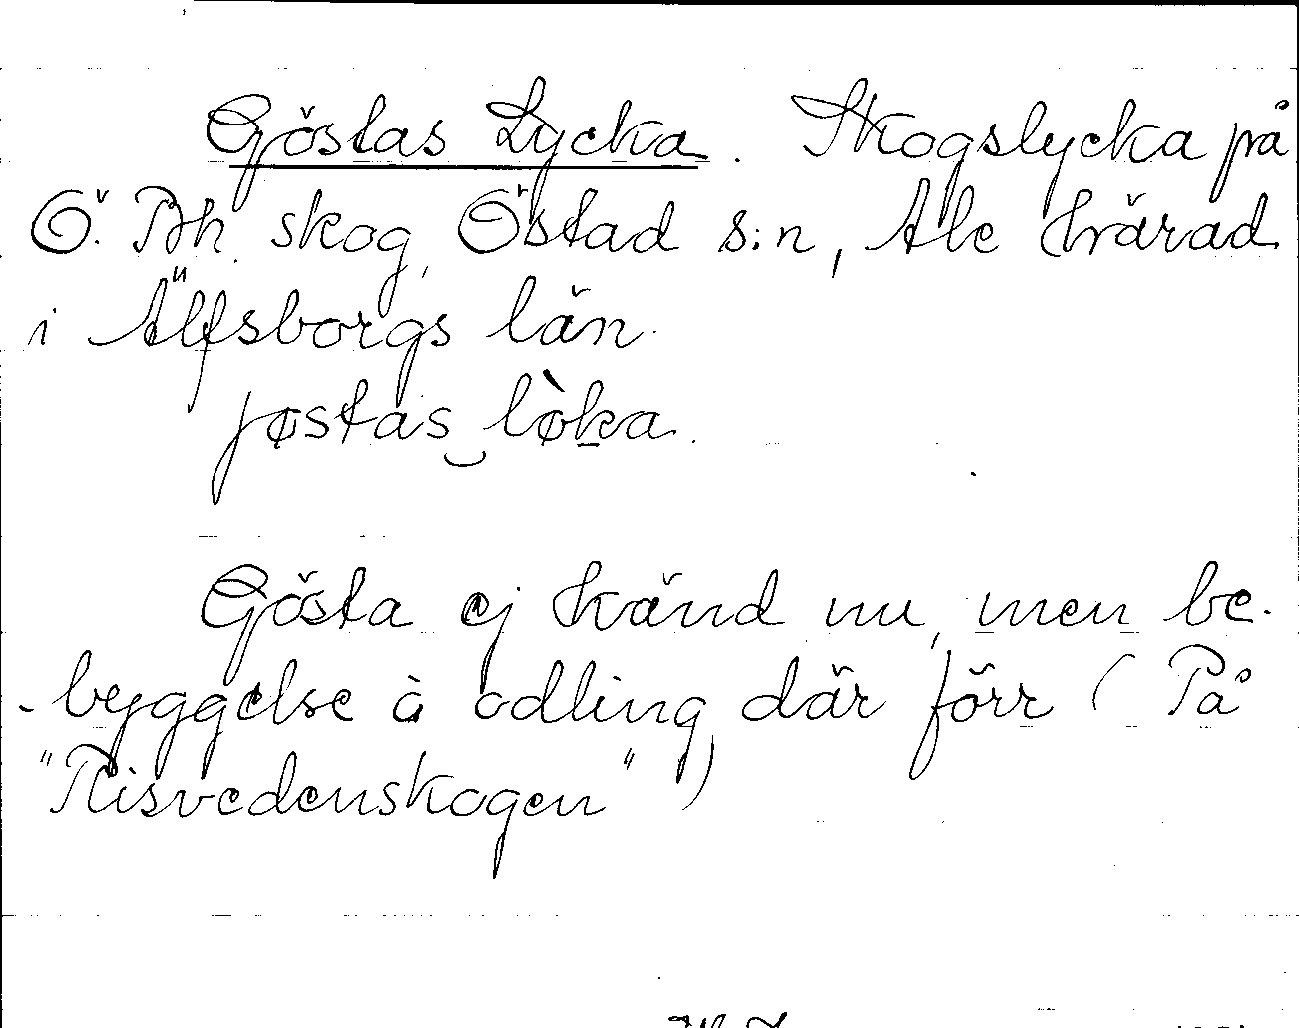 Göstas Lycka. Skogslycka på
Ö. Bh. skog, Östad s:n, Ale härad
i Älfsborgs län.
jøstas‿lø̀ka.
Gösta ej känd nu, men be-
-byggelse à odling där förr (På
"Risvedenskogen")